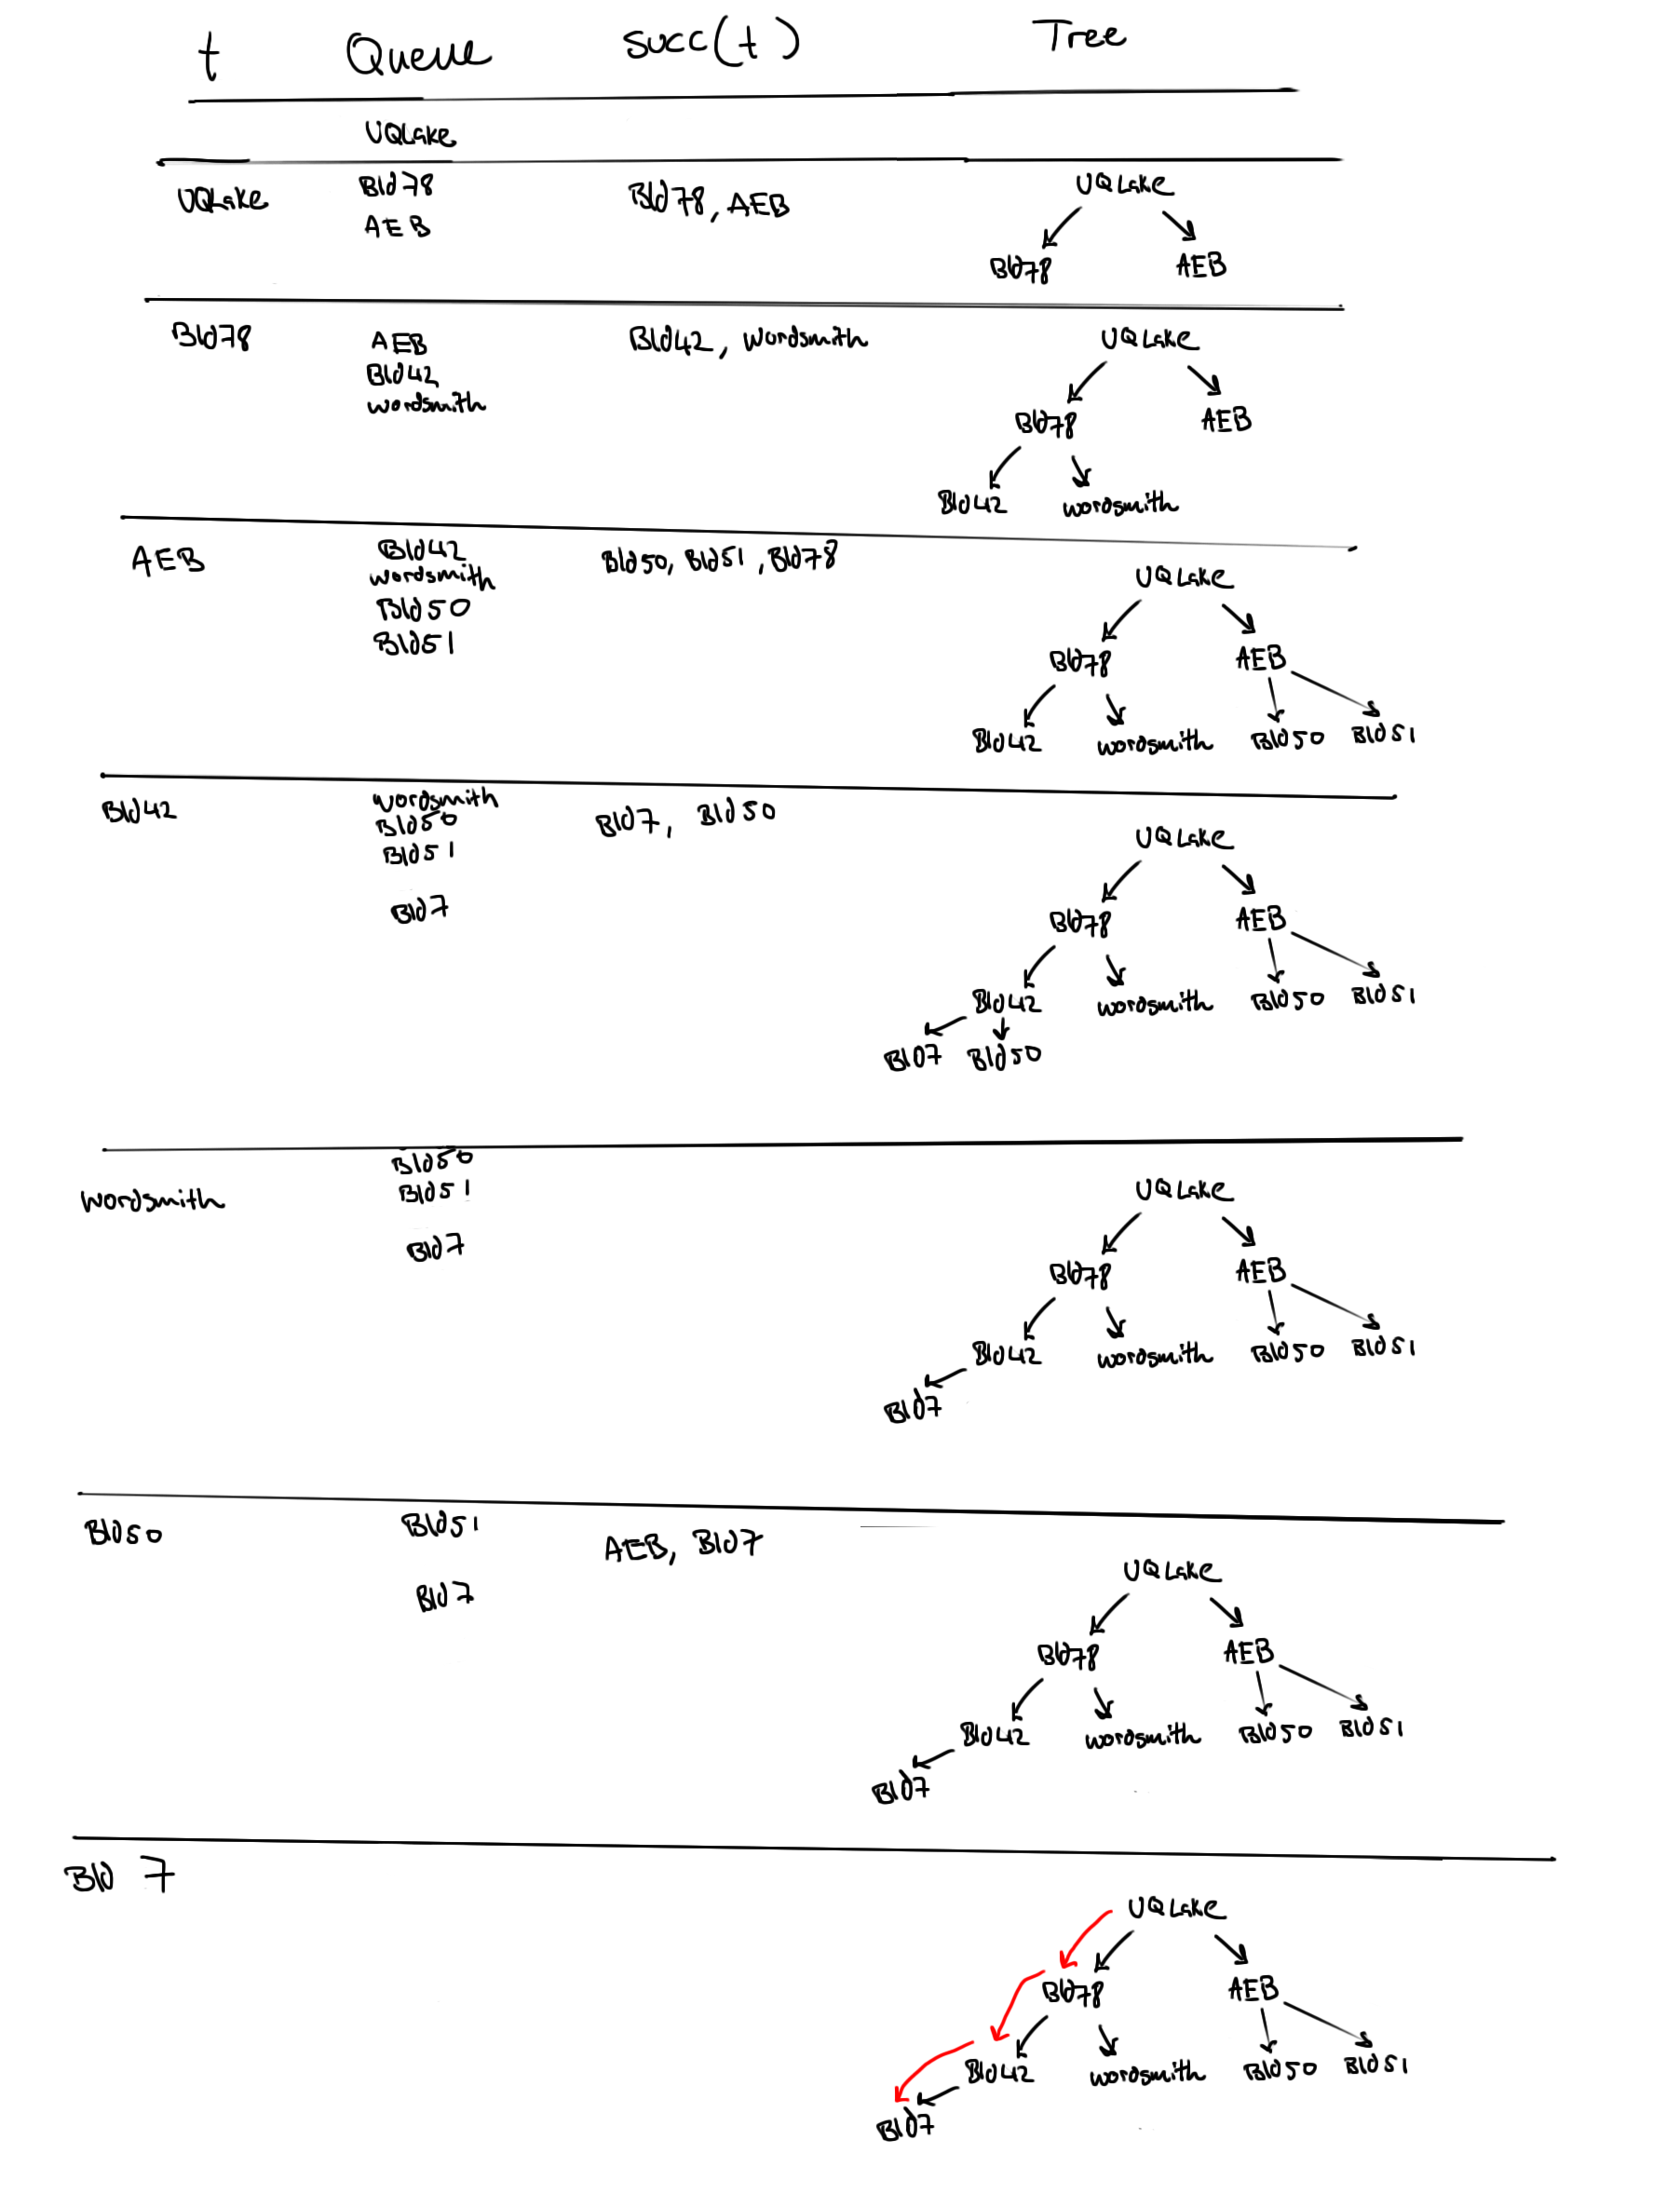 t Queue succ(t) Tree
UQLake
UQLake Bld78 Bld78, AEB UQLake
AEB
Bld78 AEB
Bld78 AEB Bld42, wordsmith UQLake
Bld42
wordsmith
Bld78 AEB
Bld42 wordsmith
AEB Bld42 Bld50, Bld51, Bld78 UQLake
wordsmith
Bld50
Bld51
Bld78 AEB
Bld42 wordsmith Bld50 Bld51
Bld42 wordsmith Bld7, Bld50 UQLake
Bld50
Bld51
Bld7
Bld78 AEB
Bld42 wordsmith Bld50 Bld51
Bld7 Bld50
wordsmith Bld50 UQLake
Bld51
Bld7
Bld78 AEB
Bld42 wordsmith Bld50 Bld51
Bld7
Bld50 Bld51 AEB, Bld7 UQLake
Bld7
Bld78 AEB
Bld42 wordsmith Bld50 Bld51
Bld7
Bld 7 UQLake
Bld78 AEB
Bld42 wordsmith Bld50 Bld51
Bld7